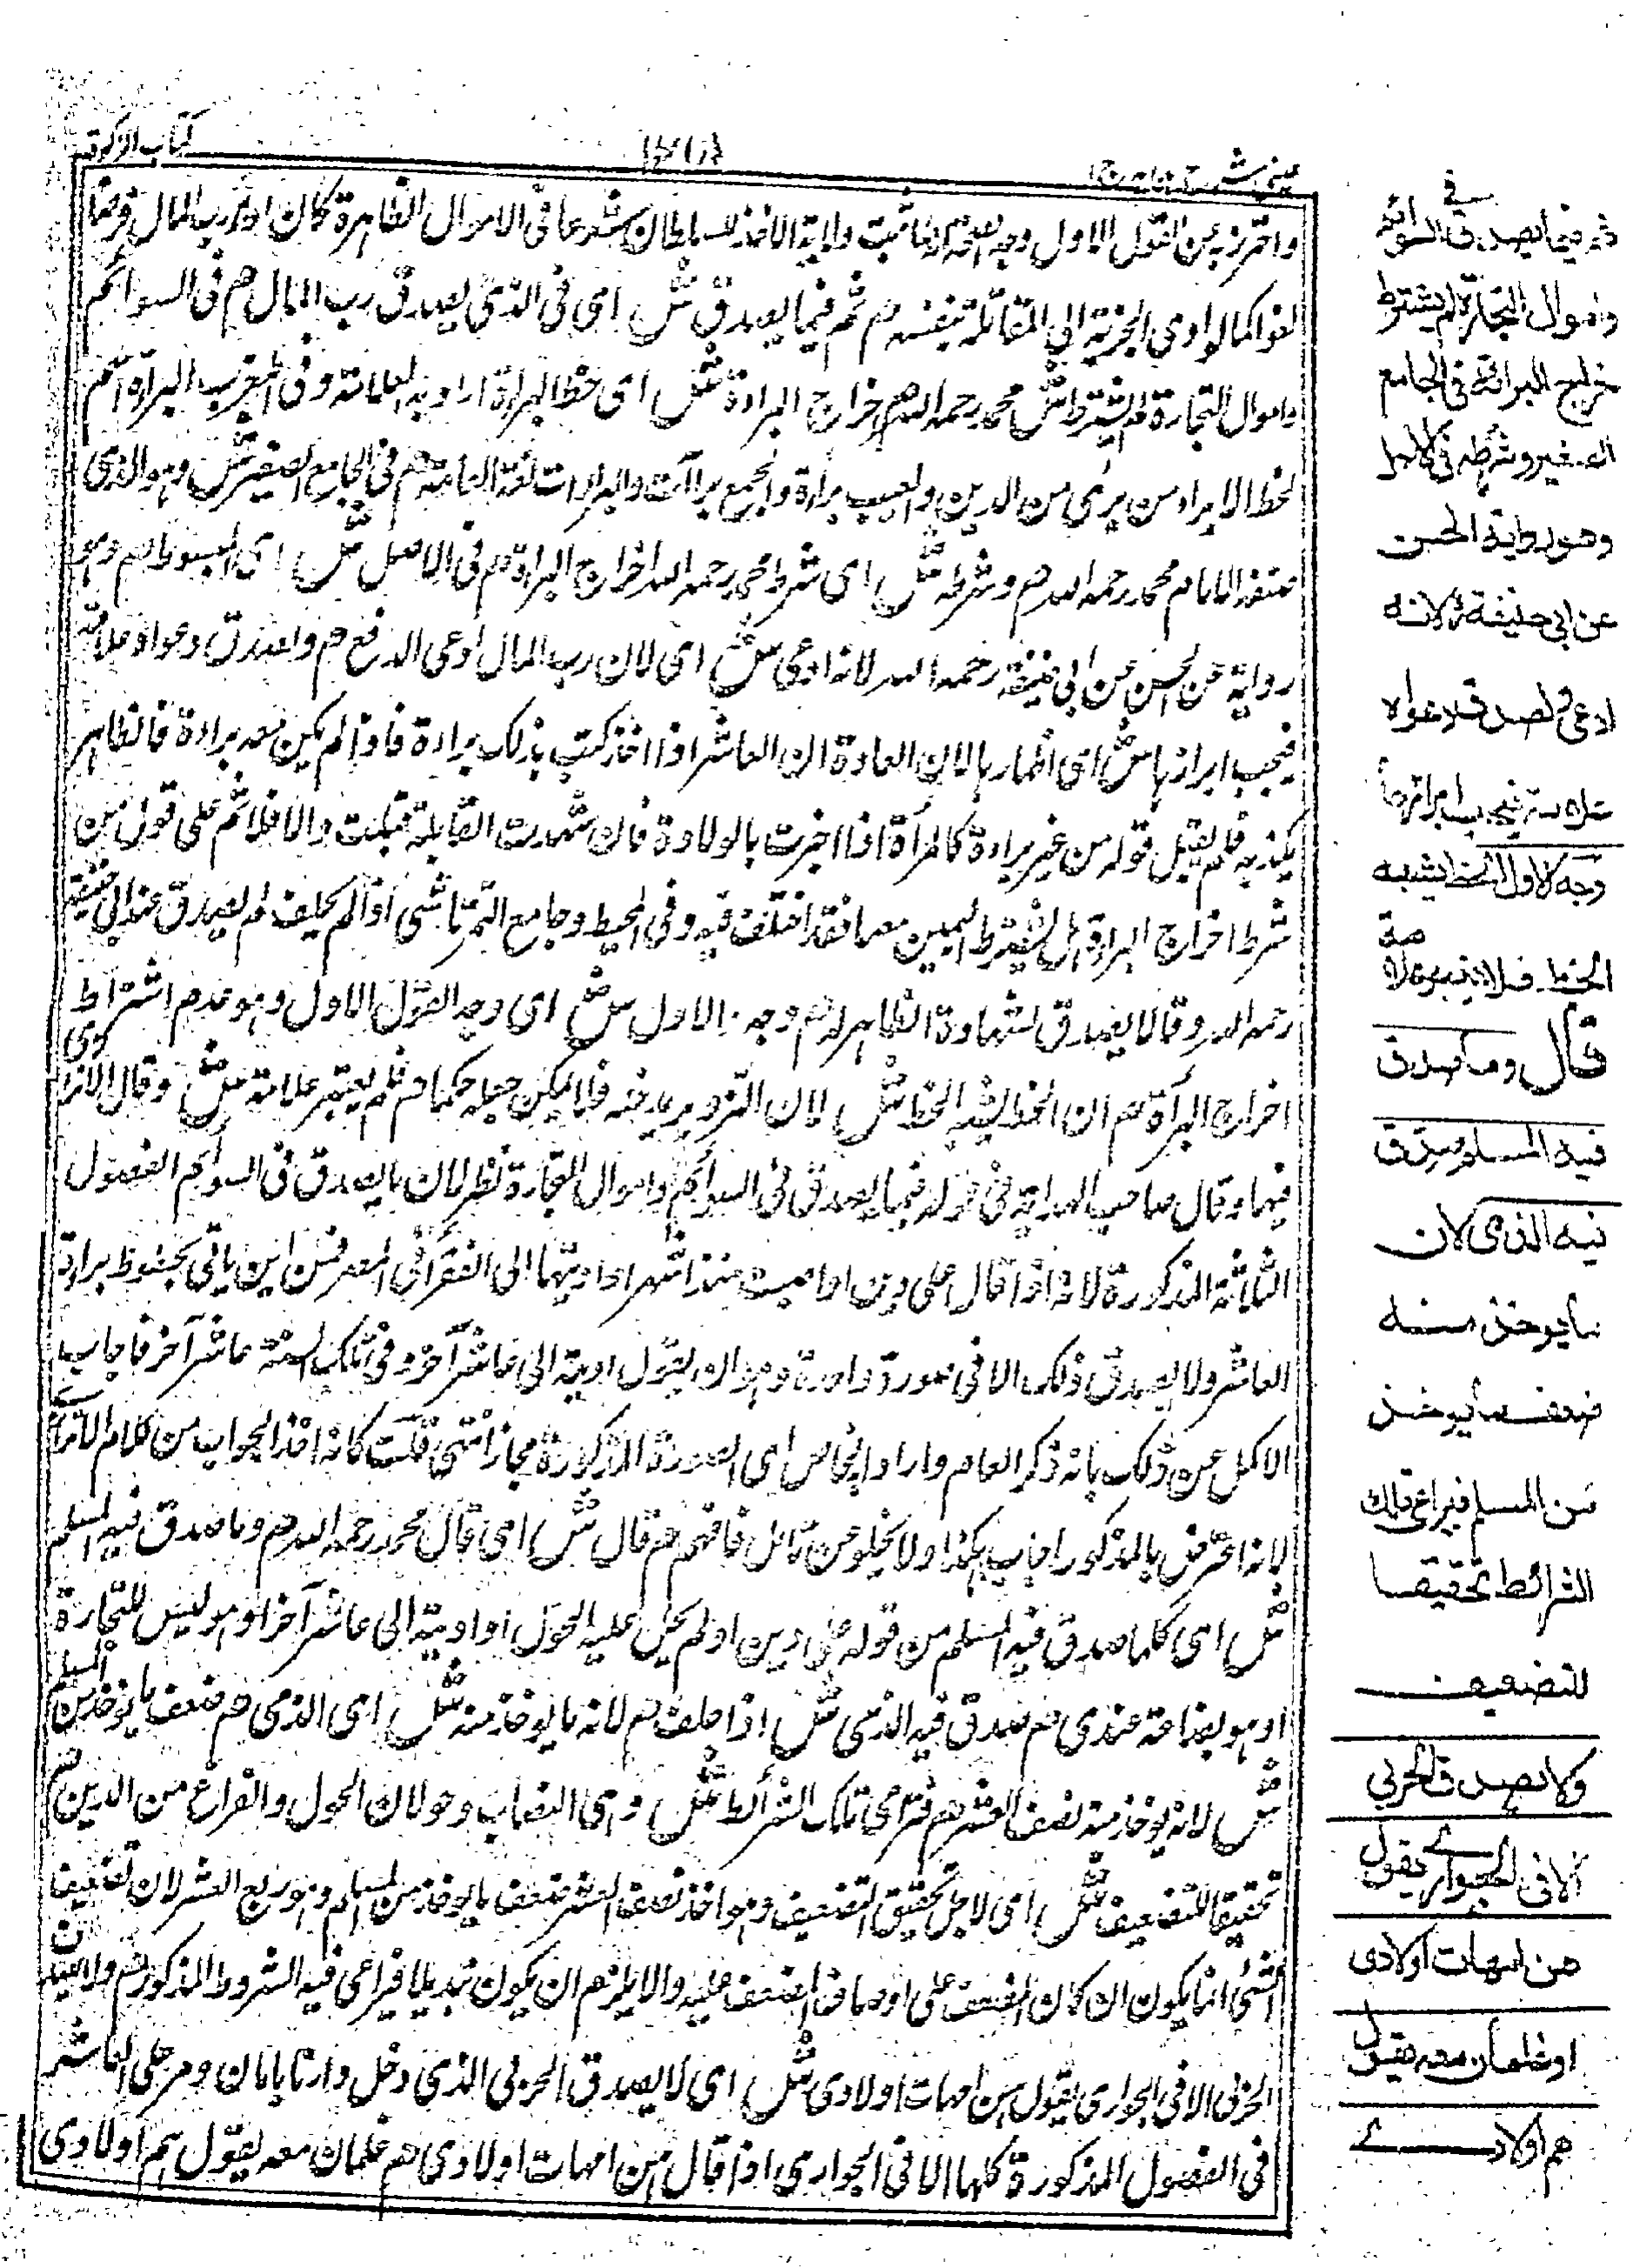 كتاب الزكوة
عينى شرح هدايه ج ١
واحترز به عن القول الاول وجه الثبت ولاية الاخذ للسلطان شرعا فى الاموال الظاهرة كان اداء رب المال فرضا
لغوا كما لو ادى الجزية الى المقاتلة بنفسه م ثم فيما يصدق ش اى فى الذى يصدق رب المال م فى السوائم
واموال التجارة لم يشترط ش محمد رحمه الله م اخراج البراءة ش اى خط البراءة اراد به العلامة وفى المغرب البراءة اسم
لخط الابراء من برئ من الدين والعيب براءة والجمع براآت والبراوات لغة العامة م فى الجامع الصغير ش وهو الذى
صنفه الامام محمد رحمه الله م وشرطه ش اى شرط محمد رحمه الله اخراج البراءة م فى الاصل ش اى المبسوط م وهو
رواية عن الحسن عن ابى حنيفة رحمه الله لانه ادعى ش اى لان رب المال ادعى الدفع م ولصدق دعواه علامة
فيجب ابرازها ش اى اظهارها لان العادة ان العاشر اذا اخذ كتب بذلك براءة فاذا لم يكن معه براءة فالظاهر
يكذبه فلم يقبل قوله من غير براءة كالمرأة اذا اخبرت بالولادة فان شهدت القابلة قبلت والا فلا ثم على قول من
شرط اخراج البراءة هل يشترط اليمين معها فقد اختلف فيه وفى المحيط وجامع التمرتاشى اذا لم يحلف لم يصدق عند ابى حنيفة
رحمه الله وقالا يصدق لشهادة الظاهر له م وجه الاول ش اى وجه القول الاول وهو عدم اشتراط
اخراج البرآة م ان الخط يشبه الخط ش لان التزوير يدخله فلا يمكن جعله حكما م فلم يعتبر علامة ش وقال الاترازى
فيها وقال صاحب الهداية فى قوله فيما يصدق فى السوائم واموال التجارة نظر لان ما يصدق فى السوائم الفصول
الثلثة المذكورة لانه اذا قال على دين او اصبت منذ اشهر او اديتها الى الفقراء فى المصر فمن اين ياتى بخطوط براءة
العاشر ولا يصدق ذلك الا فى صورة واحدة وهو ان يقول اديت الى عاشر آخر وفى تلك السنة عاشر آخر فاجاب
الاكمل عن ذلك بانه ذكر العام واراد الخاص اى الصورة المذكورة مجازا انتهى قلت كانه اخذ الجواب من كلام الاترازى
لانه اعترض بالمذكور اجاب هكذا ولا يخلو عن تامل فافهم م قال ش اى قال محمد رحمه الله م وما صدق فيه المسلم
ش اى كلما صدق فيه المسلم من قوله على دين او لم يحل عليه الحول او اديت الى عاشر آخر او هو ليس للتجارة
او هو بضاعة عندى م صدق فيه الذمى ش اذا حلف م لانه ما يوخذ منه ش اى الذمى م ضعف ما يوخذ من المسلم
ش لانه يوخذ منه نصف العشر م فتراعى تلك الشرائط ش وهى النصاب وحولان الحول والفراغ من الدين م
تحقيقا للتضعيف ش اى لاجل تحقيق التضعيف وهو اخذ نصف العشر ضعف ما يوخذ من المسلم وهو ربع العشر لان تضعيف
الشئ انما يكون ان كان المضعف على اوصاف المضعف عليه والا يلزم ان يكون تبديلا فيراعى فيه الشروط المذكورة م ولا يصدق
الحربى الا فى الجوارى يقول هن امهات اولادى ش اى لا يصدق الحربى الذى دخل دارنا بامان ومر على العاشر
فى الفصول المذكورة كلها الا فى الجوارى اذا قال هن امهات اولادى م غلمان معه يقول هم اولادى
ثم فيما يصدق فى السوائم
واموال التجارة لم يشترط
اخراج البراءة فى الجامع
الصغير وشرطه فى الاصل
وهو رواية الحسن
عن ابى حنيفة رح لانه
ادعى ولصدق دعواه
علامة فيجب ابرازها
وجه الاول ان الخط يشبه
الخط فلا يعتبر علامة
قال وما صدق
فيه المسلم صدق
فيه الذمى لان
ما يوخذ منه
ضعف ما يوخذ
من المسلم فيراعى تلك
الشرائط تحقيقا
للتضعيف
ولا يصدق الحربى
الا فى الجوارى يقول
هن امهات اولادى
او غلمان معه يقول
هم اولادى